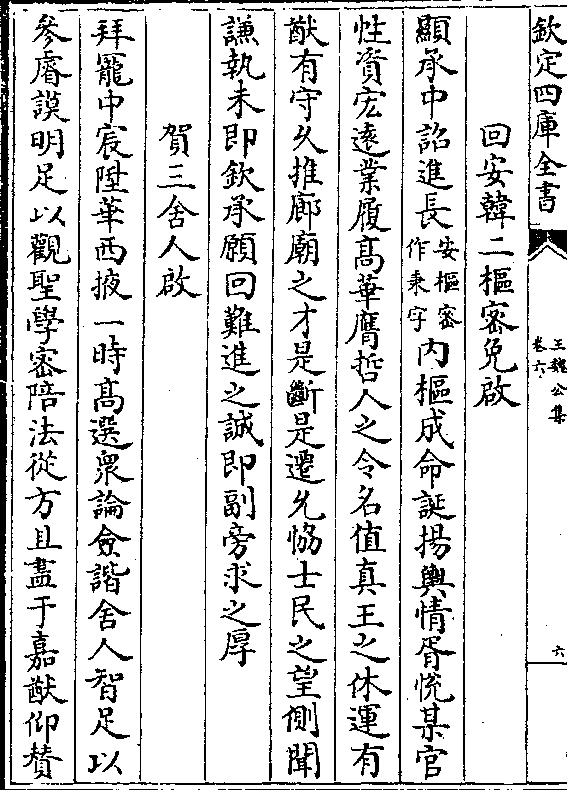 欽定四庫全書
王魏公集
卷六
六
回安韓二樞密免啟
顯承中詔進長安樞密作秉字內樞成命誕揚輿情胥恱某官
性資宏逺業履髙華膺哲人之令名值真王之休運有
猷有守久推廊廟之才是斷是遷允恊士民之望側聞
謙執未即欽承願回難進之誠即副旁求之厚
賀三舍人啟
拜寵中宸陞華西掖一時髙選衆論僉諧舍人智足以
參廥謨明足以觀聖學密陪法從方且盡于嘉猷仰賛